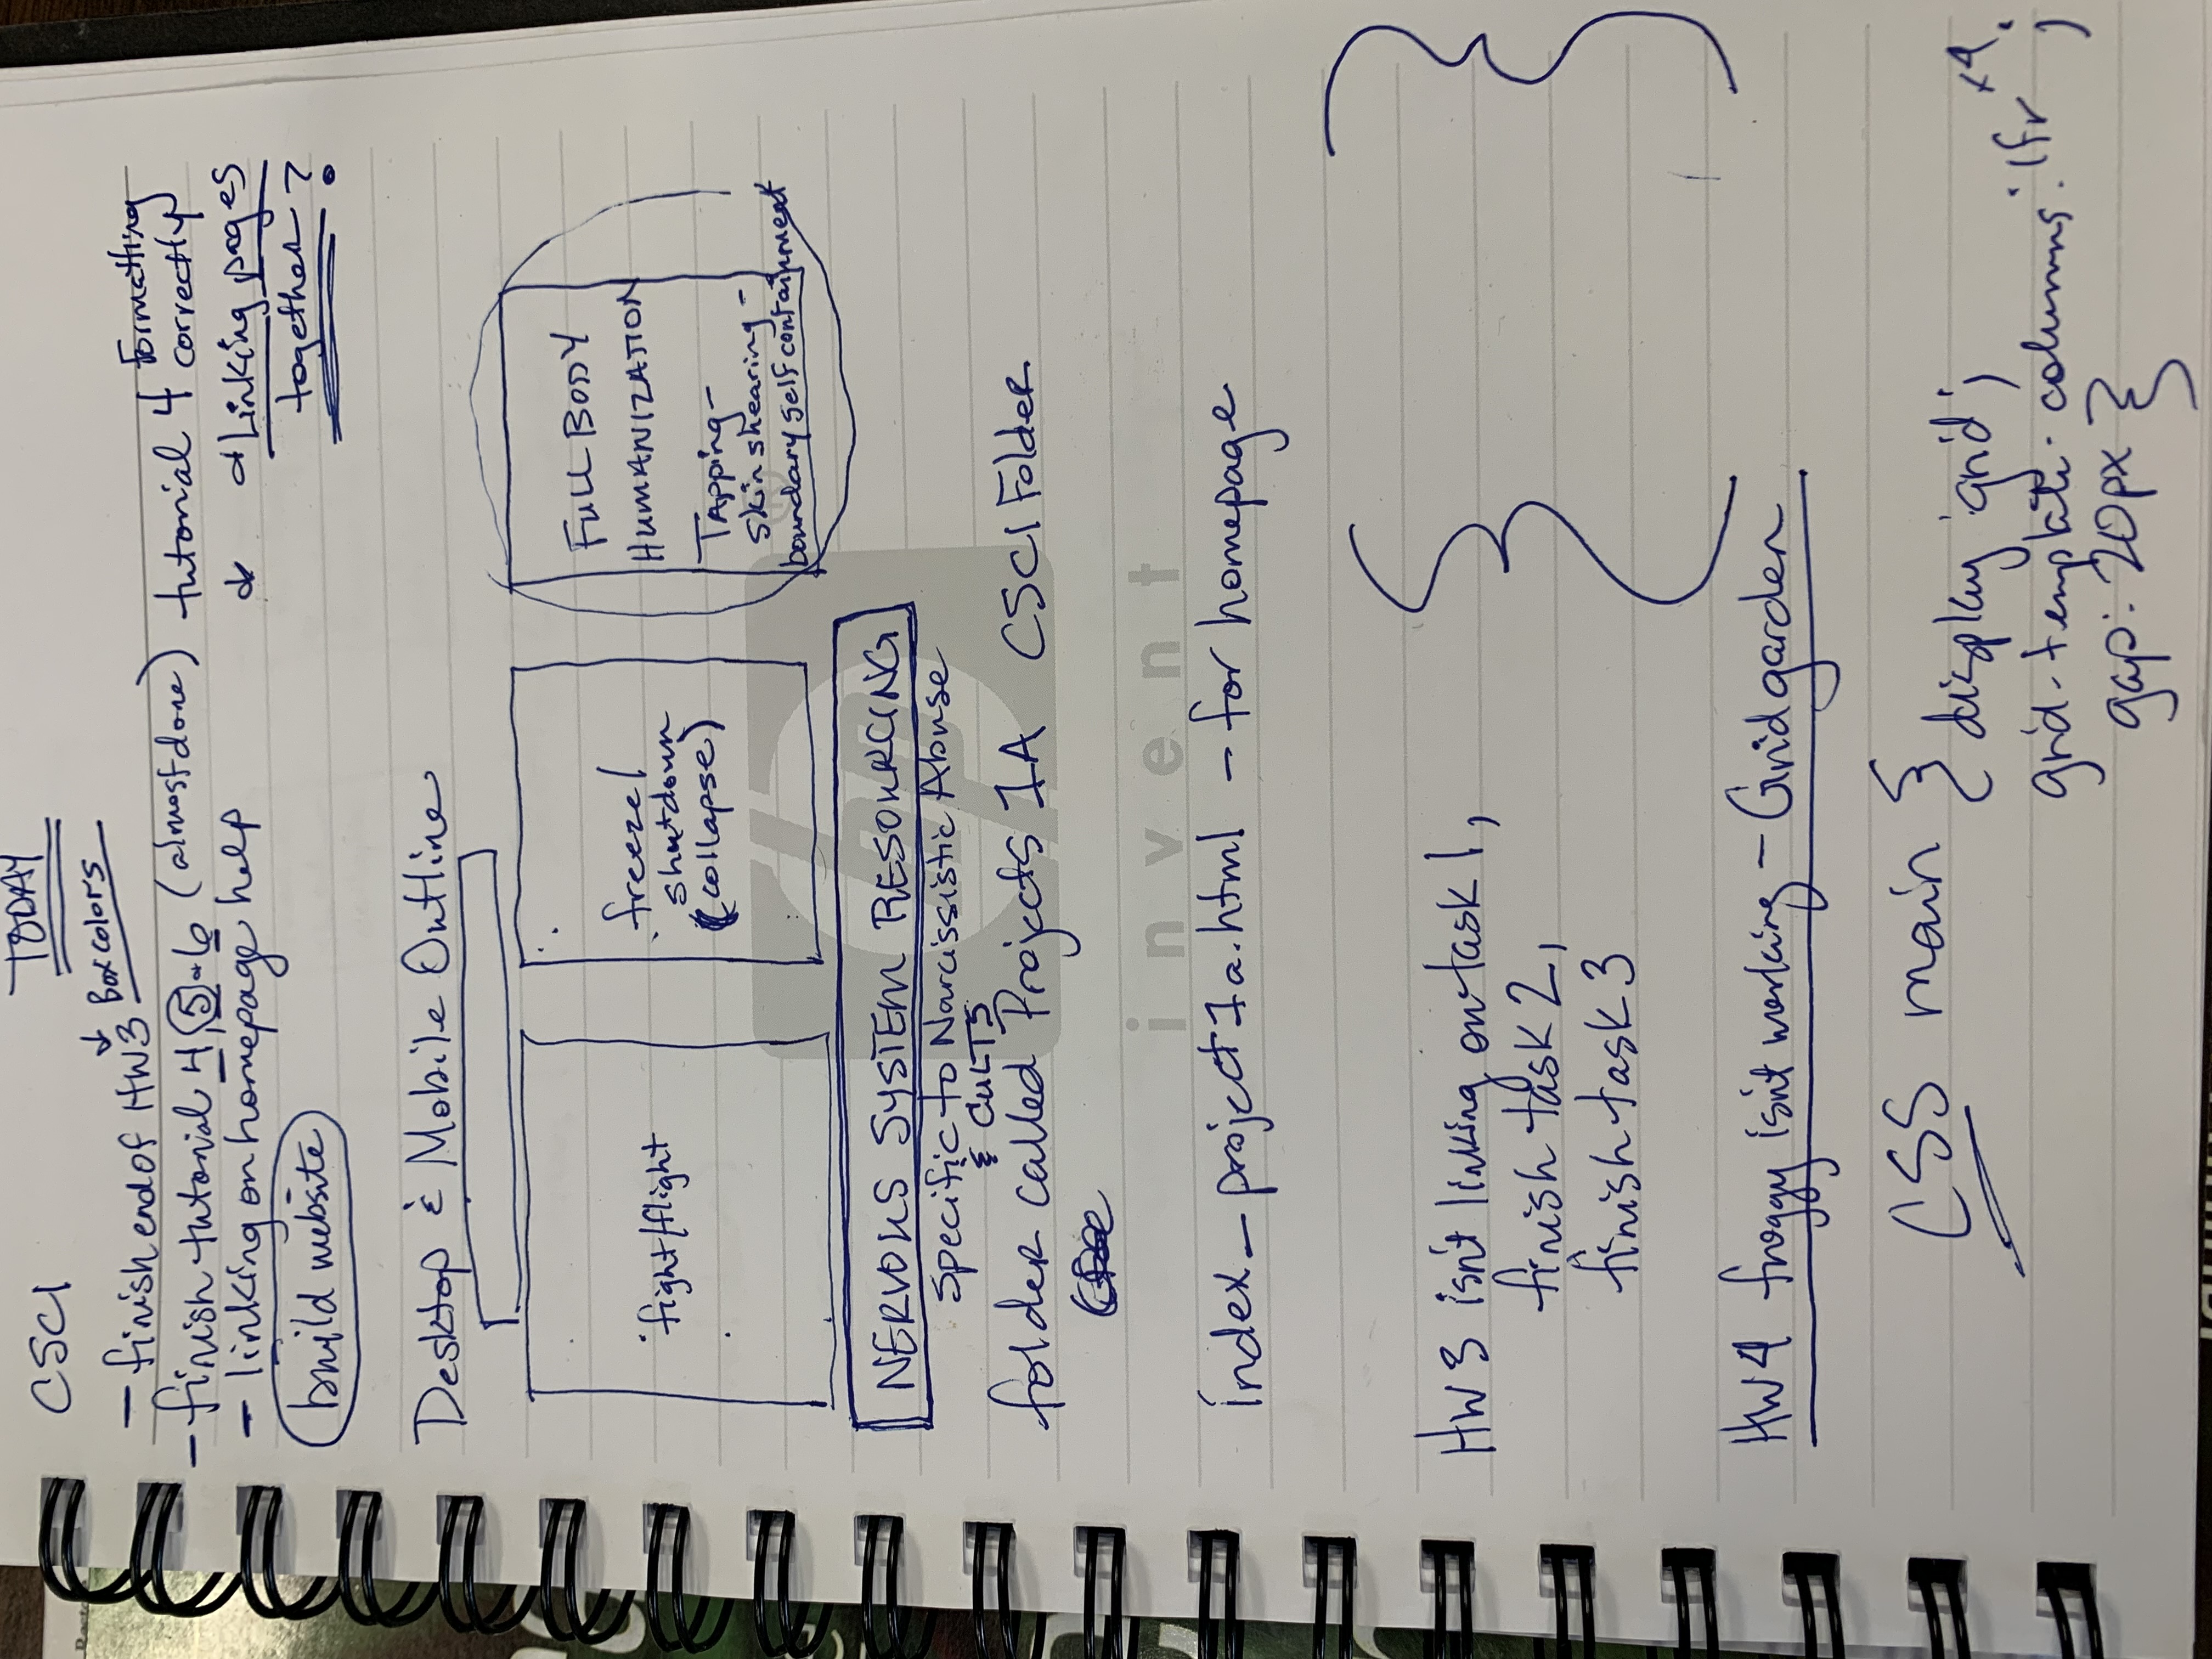 CSCI TODAY
↓ Box colors
- finish end of HW3
- finish tutorial 4, 5 - 6 (almost done) tutorial 4 formatting correctly
- linking on homepage help
↓ & Linking pages together?
build website
Desktop & Mobile Outline
fight/flight
freeze/
shutdown
(collapse)
FULL BODY
HUMANIZATION
TAPPing-
skin shearing-
boundary self containment
NERVOUS SYSTEM RESOURCING
Specific to Narcissistic Abuse
& CULTS
folder called Projects 1A CSCI Folder
hp
invent
index_project1a.html - for homepage
HW3 isn't linking on task 1,
finish task 2,
finish task 3
{ }
HW4 froggy isn't working - Grid garden
CSS main { display 'grid';
grid-template-columns: 1fr x4;
gap: 20px }